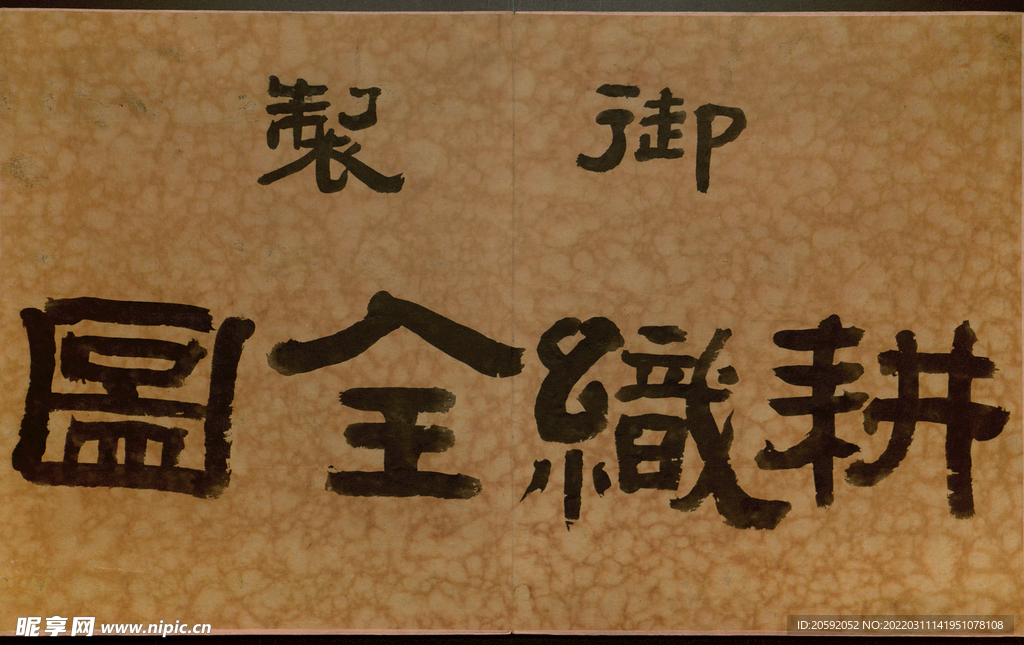 御製
耕織全圖
昵享网 www.nipic.cn
ID:20592052 NO:20220311141951078108